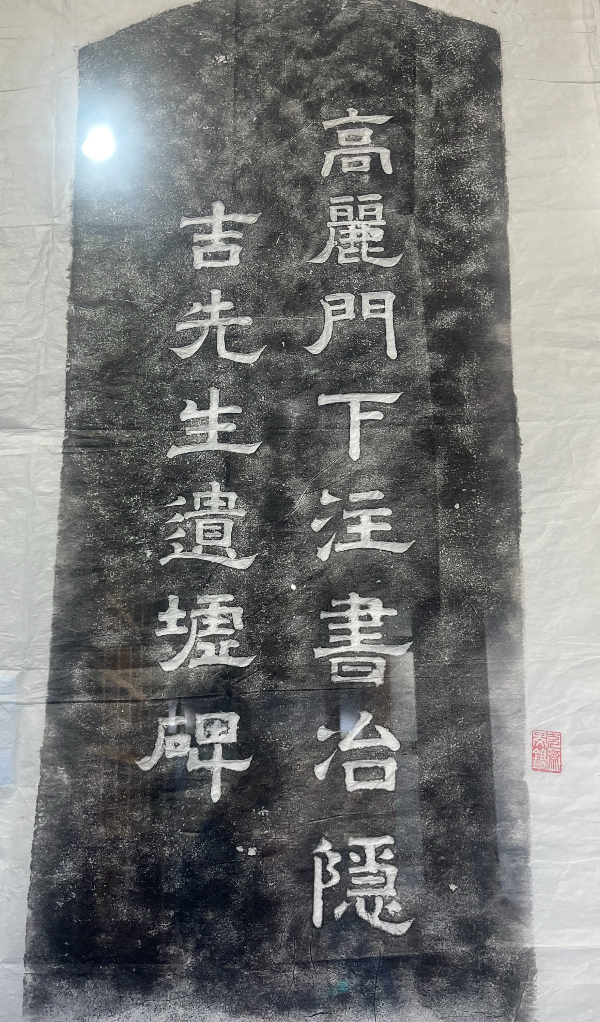 高麗門下注書冶隱
吉先生遺墟碑